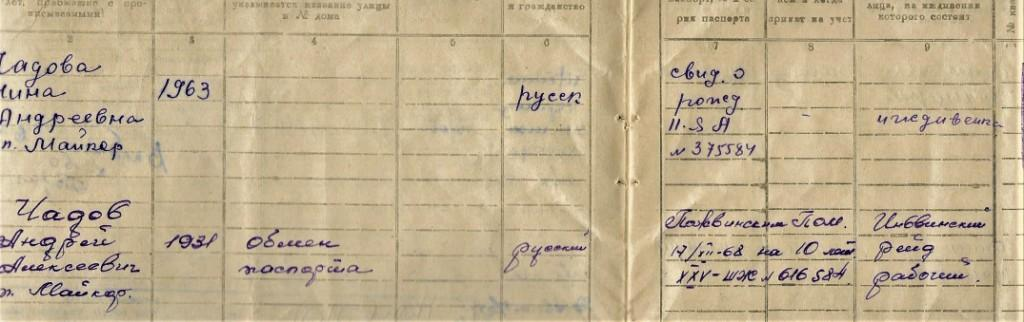 лет, прописано с про-
писываемыми)
указывается название улицы
и № дома
и гражданство
рия паспорта
принят на учет
лица, на иждивении
которого состоит
2
3
4
5
6
7
8
9
Чадова
Нина
Андреевна
п. Майкор
1963
русск
свид. о
рожд.
II-ЯА
№ 375584
-
иждивенка
Чадов
Андрей
Алексеевич
п. Майкор.
1931
обмен
паспорта
русский
Пожвинским Пом.
17/VII-68 на 10 лет
XXV-ШЖ № 616584
Иньвинский
рейд
рабочий.